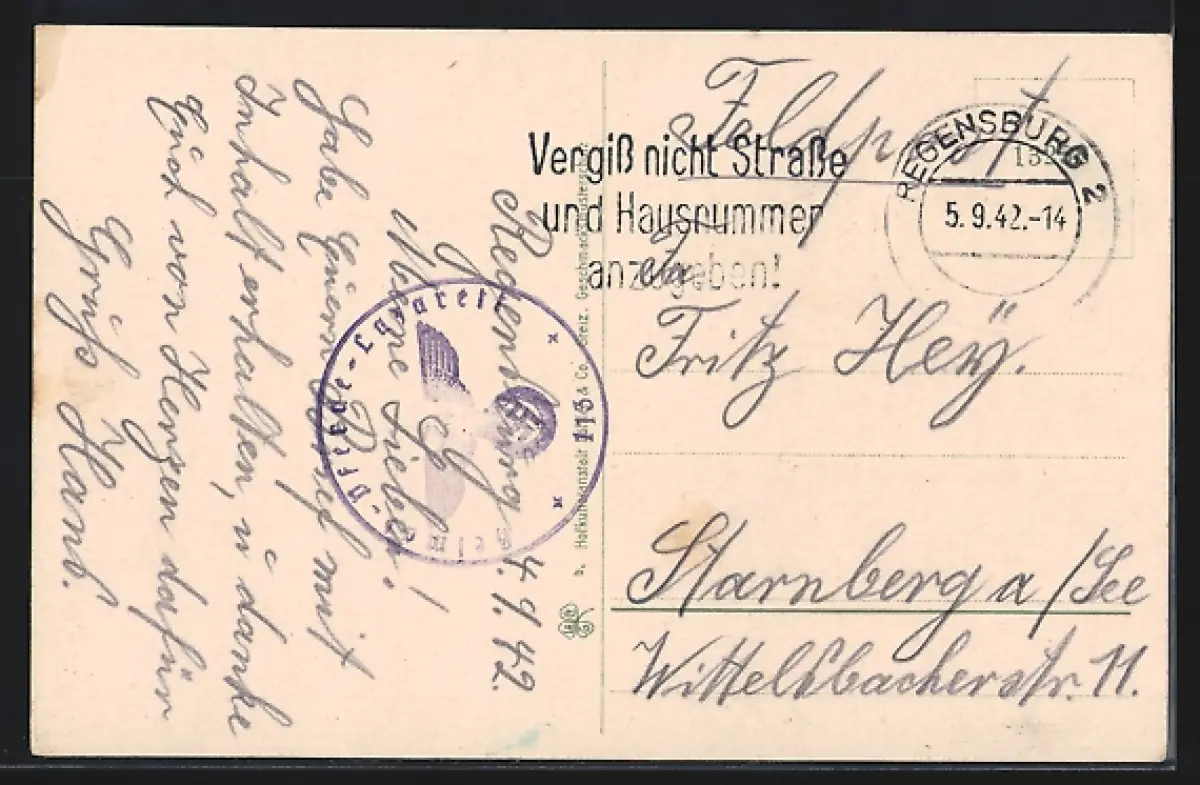 Regensburg 4.9.42.
Meine Lieben!
Habe Euern Brief mit
Inhalt erhalten, u danke
Euch von Herzen dafür
Gruß Hans.
Feldpost
Vergiß nicht Straße
und Hausnummer
anzugeben!
REGENSBURG 2
5.9.42.-14
Fritz Hey.
Starnberg a/See
Wittelsbacherstr. 11.
Hofkunstanstalt & Co. Greiz. Geschmacksmuster
Lazarett